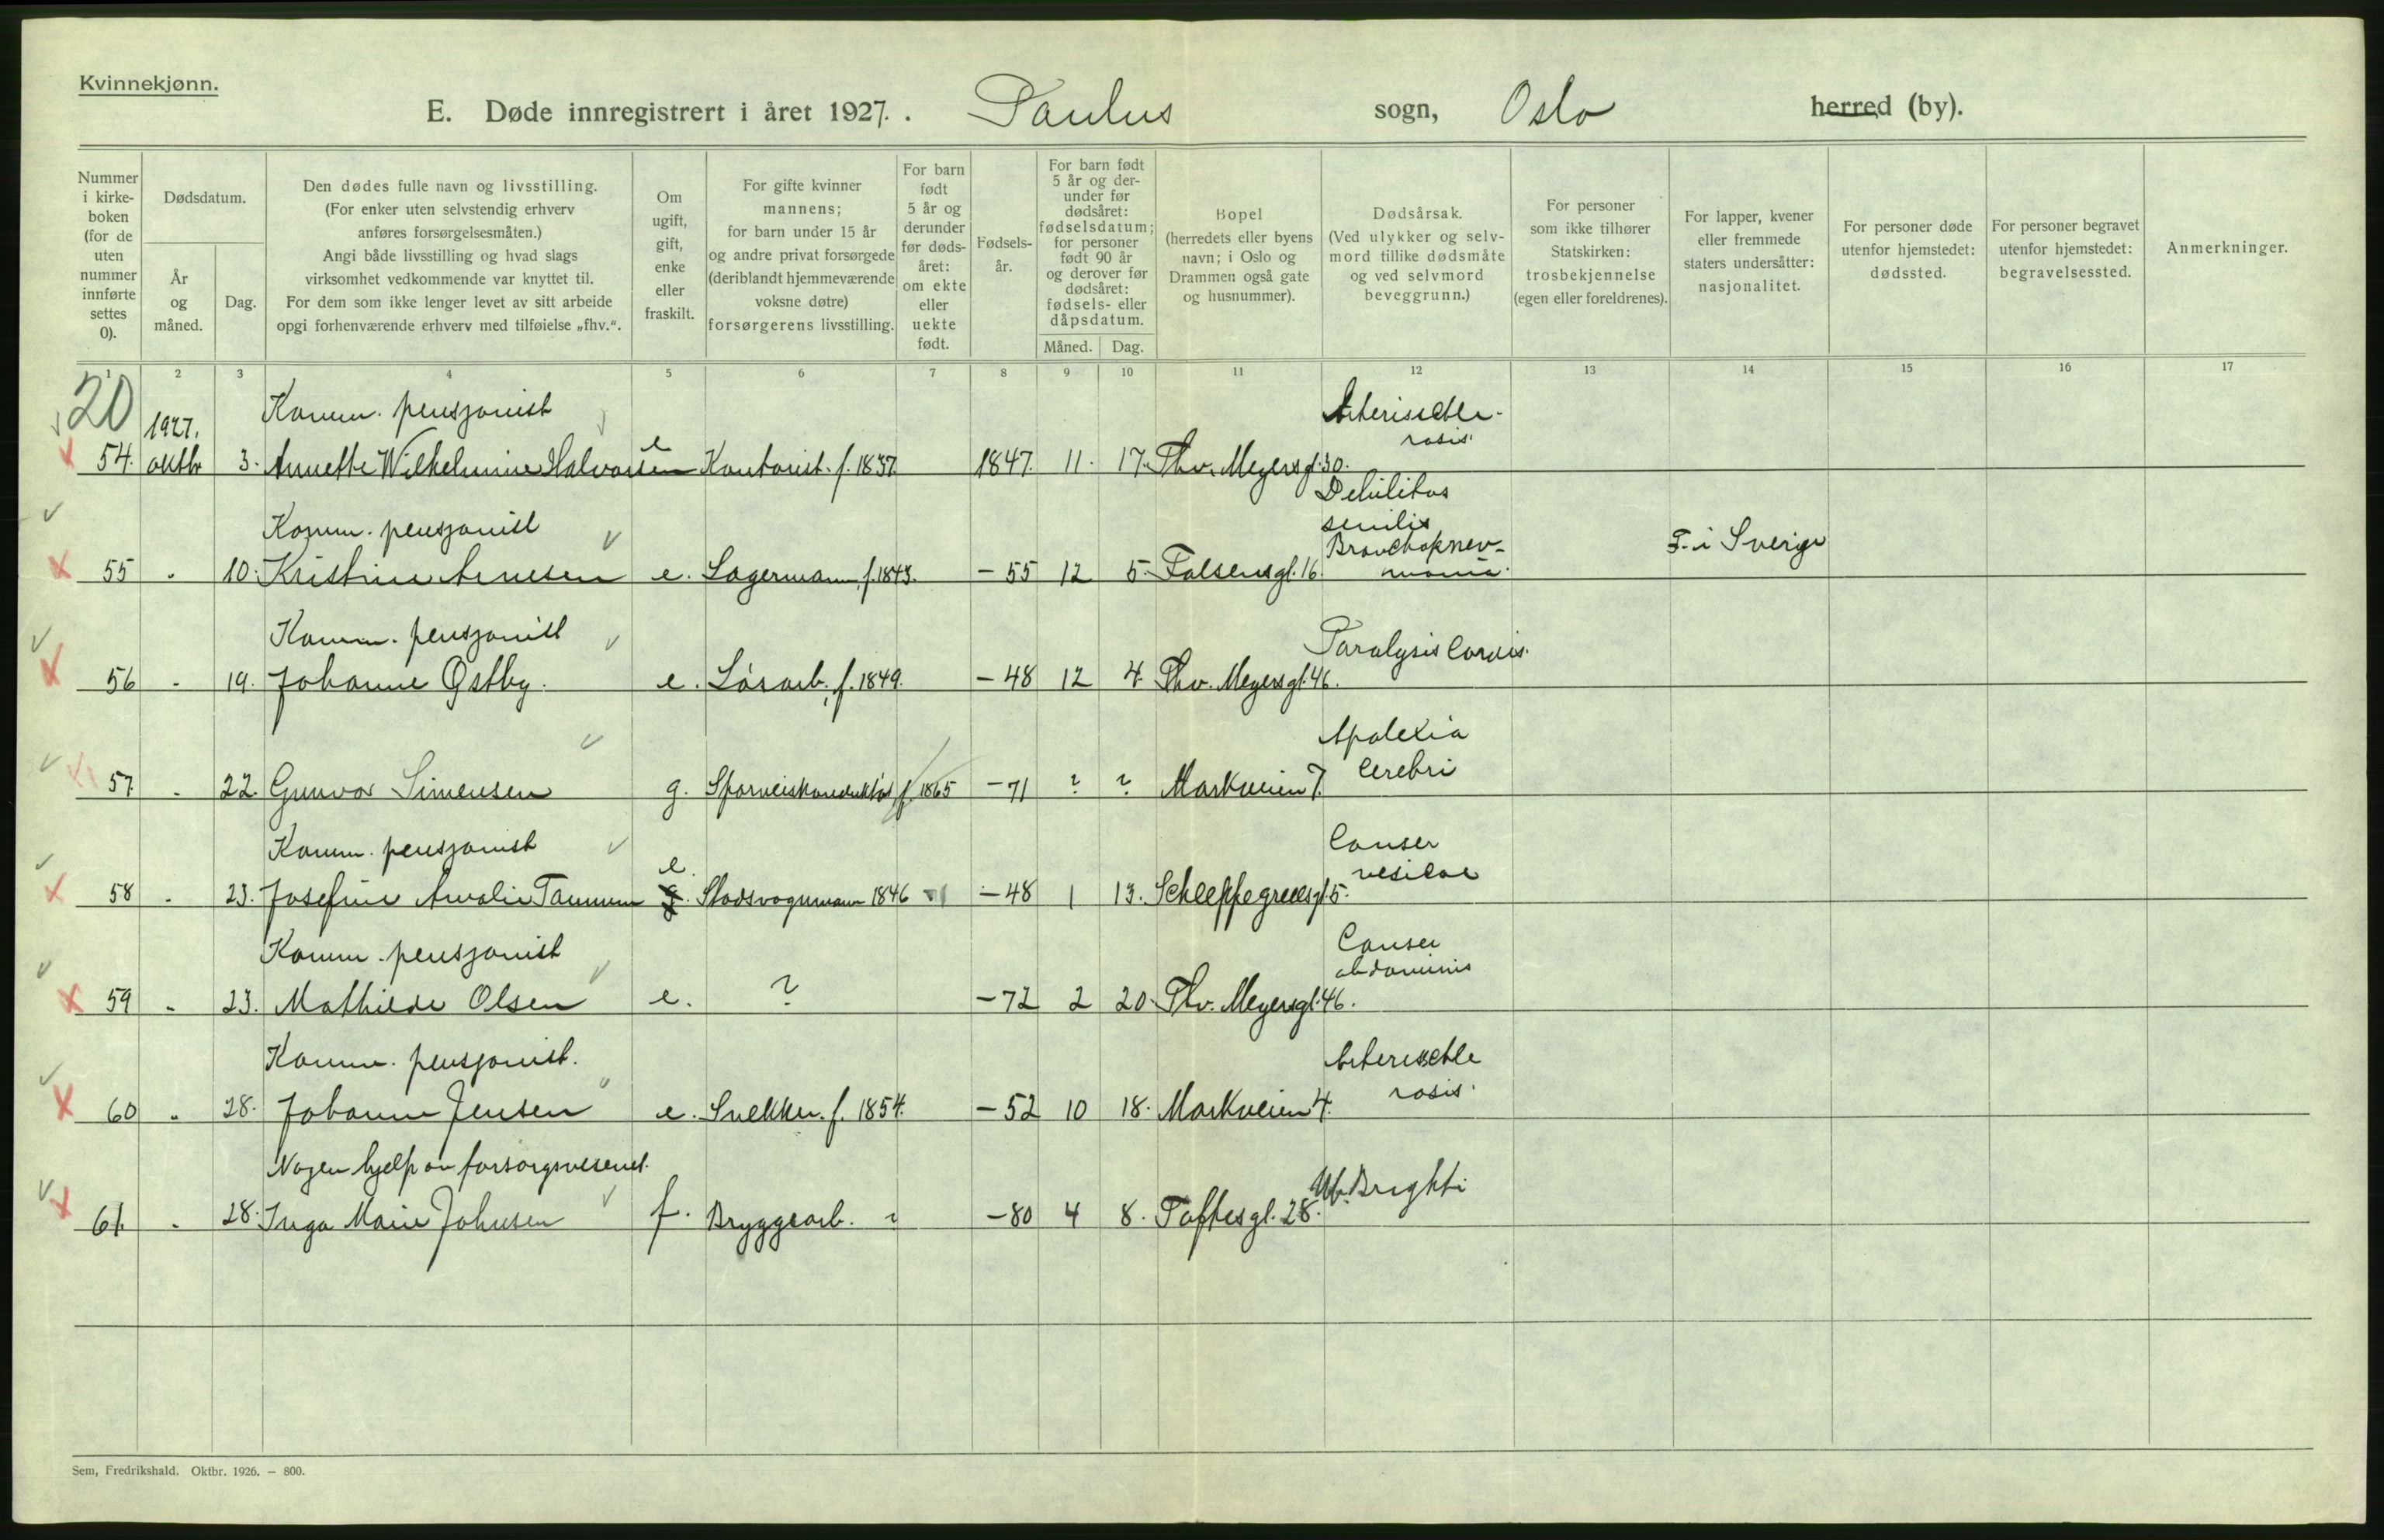 Kvinnekjønn.
E. Døde innregistrert i året 1927. . Paulus sogn, Oslo herred (by).
Nummer i kirke-boken (for de uten nummer innførte settes 0).
Dødsdatum.
År og måned.
Dag.
Den dødes fulle navn og livsstilling.
(For enker uten selvstendig erhverv
anføres forsørgelsesmåten.)
Angi både livsstilling og hvad slags
virksomhet vedkommende var knyttet til.
For dem som ikke lenger levet av sitt arbeide
opgi forhenværende erhverv med tilføielse „fhv.“.
Om ugift, gift, enke eller fraskilt.
For gifte kvinner
mannens;
for barn under 15 år
og andre privat forsørgede
(deriblandt hjemmeværende
voksne døtre)
forsørgerens livsstilling.
For barn født 5 år og derunder før døds-året: om ekte eller uekte født.
Fødsels-år.
For barn født
5 år og der-
under før
dødsåret:
fødselsdatum;
for personer
født 90 år
og derover før
dødsåret:
fødsels- eller
dåpsdatum.
Måned. Dag.
Bopel
(herredets eller byens
navn; i Oslo og
Drammen også gate
og husnummer).
Dødsårsak.
(Ved ulykker og selv-
mord tillike dødsmåte
og ved selvmord
beveggrunn.)
For personer
som ikke tilhører
Statskirken:
trosbekjennelse
(egen eller foreldrenes).
For lapper, kvener
eller fremmede
staters undersåtter:
nasjonalitet.
For personer døde
utenfor hjemstedet:
dødssted.
For personer begravet
utenfor hjemstedet:
begravelsessted.
Anmerkninger.
1 2 3 4 5 6 7 8 9 10 11 12 13 14 15 16 17
20 1927. Komm. pensjonist Arteriscle-
rosis.
54. oktbr 3. Annette Wilhelmine Halvorsen e Kontorist. f. 1837. 1847. 11. 17. Thv. Meyersgt. 30.
Komm. pensjonist Debilitas
senilis
Bronchopnev-
monia.
55 " 10. Kristine Arnesen e. Lagermann, f. 1843. -55 12 5. Falsensgt. 16. F. i Sverige
Komm. pensjonist Paralysis Cordis.
56 " 19. Johanne Østby. e. Løsarb. f. 1849. -48 12 4. Thv. Meyersgt. 46.
Apolexia
Cerebri
57 " 22. Gunvor Simensen g. Sporveiskonduktør, f. 1865 -71 ? ? Markveien 7.
Komm. pensjonist Canser
vesicae
58 " 23. Josefine Amalie Tammum e. g. Stadsvognmann 1846 -48 1 13. Schleppegrellsgt. 5.
Komm. pensjonist Canser
abdominis
59 " 23. Mathilde Olsen e. ? -72 2 20. Thv. Meyersgt. 46.
Komm. pensjonist. Arteriscle
rosis.
60 " 28. Johanne Jensen e. Snekker. f. 1854. -52 10 18. Markveien 4.
Nogen hjelp av forsorgsvesenet. Mb. Brighti
61. " 28. Inga Marie Johnsen f. Bryggearb. ? -80 4 8. Toftesgt. 28.
Sem, Fredrikshald. Oktbr. 1926. — 800.